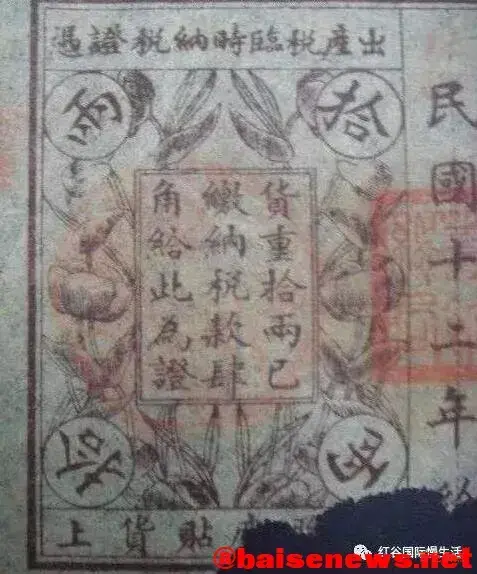 民國十二年
出產稅臨時納稅證憑
拾
兩
貨重拾兩已
繳納稅款肆
角給此為證
拾
兩
貼貨上
红谷国际慢生活
@baisenews.net